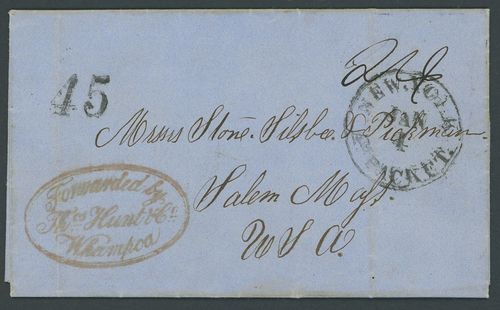 45
NEW-YORK
JAN
PACKET.
Messrs Stone. Silsbee & Pickman.
Salem Mass.
U S A.
Forwarded by
Thos. Hunt & Co.
Whampoa